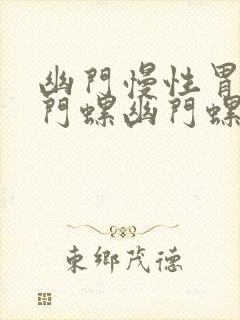 幽門慢性胃
門螺幽門螺
東鄉茂德